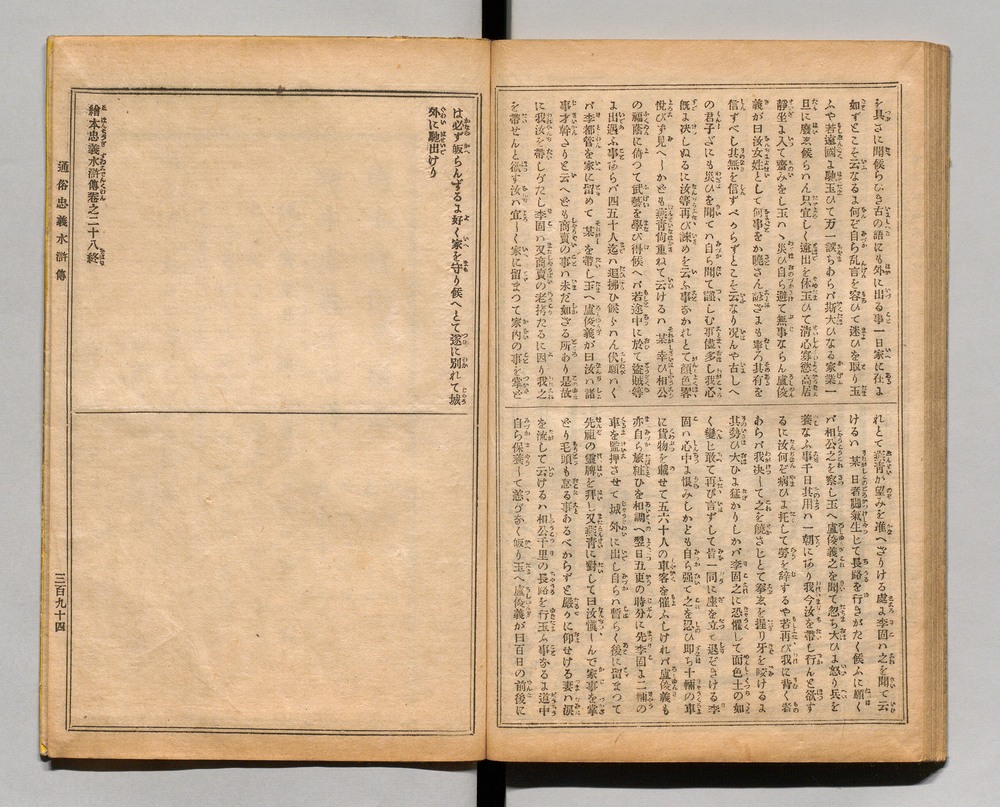 を具さに聞候らひき古の語にも外に出る事一日家に在よ
如ずとこそ云なるよ何ぞ自ら乱言を容ひて迷ひを取り玉
ふや若遠國よ馳玉ひて万一誤ちあらバ斯大ひなる家業一
旦に廢え候らハん只宜しく遠出を休玉ひて清心寡慾高居
靜坐よ入て齋みをし玉ハヾ災ひ自ら避て無事ならん盧俊
義が曰汝女姓として何事をか曉さん
信ずべし其無を信ずべからずとこそ云なり况んや古しへ
の君子ざにも災ひを聞てハ自ら間て謹しむ事儘多し我心
既よ决しぬるに汝等再び諫めを云ふ事なかれとて顏色畧
悅びず見へしかども燕青尙重ねて云けるハ某幸ひ相公
の福蔭に倚つて武藝を學び得候へバ若途中に於て盜賊等
よ出遇ふ事あらバ四五十人迄ハ追拂ひ候らハん伏願ハく
バ李都管を家に留めて某を帶し玉へ盧俊義が曰汝ハ諸
事才幹さりと云へども商賣の事ハ未だ如ざる所あり是故
に我汝を帶しがたし李固ハ又商賣の老拷たるに因り我之
を帶せんと欲す汝ハ宜しく家に留まつて家內の事を掌ど
れとて燕青が望みを進へざりける處よ李固ハ之を聞て云
けるハ某日者脚氣生じて長路を行きがたく候ふに願く
バ相公之を察し玉へ盧俊義之を聞て忽ち大ひよ怒り兵を
養なふ事千日其用ハ一朝にあり我今汝を帶し行んと欲す
るに汝何ぞ病ひよ托して勞を辭するや若再び我に背く者
あらバ我决して之を饒さじとて拳を握り牙を咬けるよ
其勢ひ大ひよ猛かりしかバ李固之に恐懼して面色土の如
く變じ敢て再び言ずして皆一同に座を立て退ぞきける李
固ハ心中よ恨みしかども自ら强て之を忍び即ち十輛の車
に貨物を載せて五六十人の車客を催ふしけれバ盧俊義も
亦自ら旅粧ひを相調へ翌日五更の時分に先李固よ二輛の
車を監押させて城外に出し自らハ暫らく後に留まつて
先祖の靈牌を拜し又燕青に對して曰汝愼しんで家事を掌
どり毛頭も怒る事あるべからずと嚴りに仰せける妻ハ淚
を流して云けるハ相公千里の長路を行玉ふ事なるよ道中
自ら保養して恙がなく皈り玉へ盧俊義が曰百日の前後に
は必ず皈らんずるよ好く家を守り候へとて遂に別れて城
外に馳出けり
繪本忠義水滸傳卷之二十八終
通俗忠義水滸傳
三百九十四